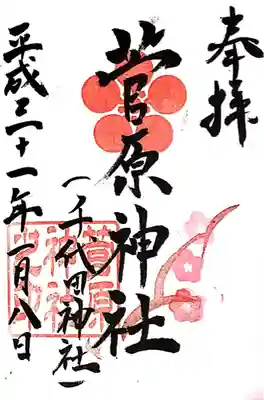 奉拝
菅原神社
(千代田神社)
平成三十一年一月八日
菅原
神社